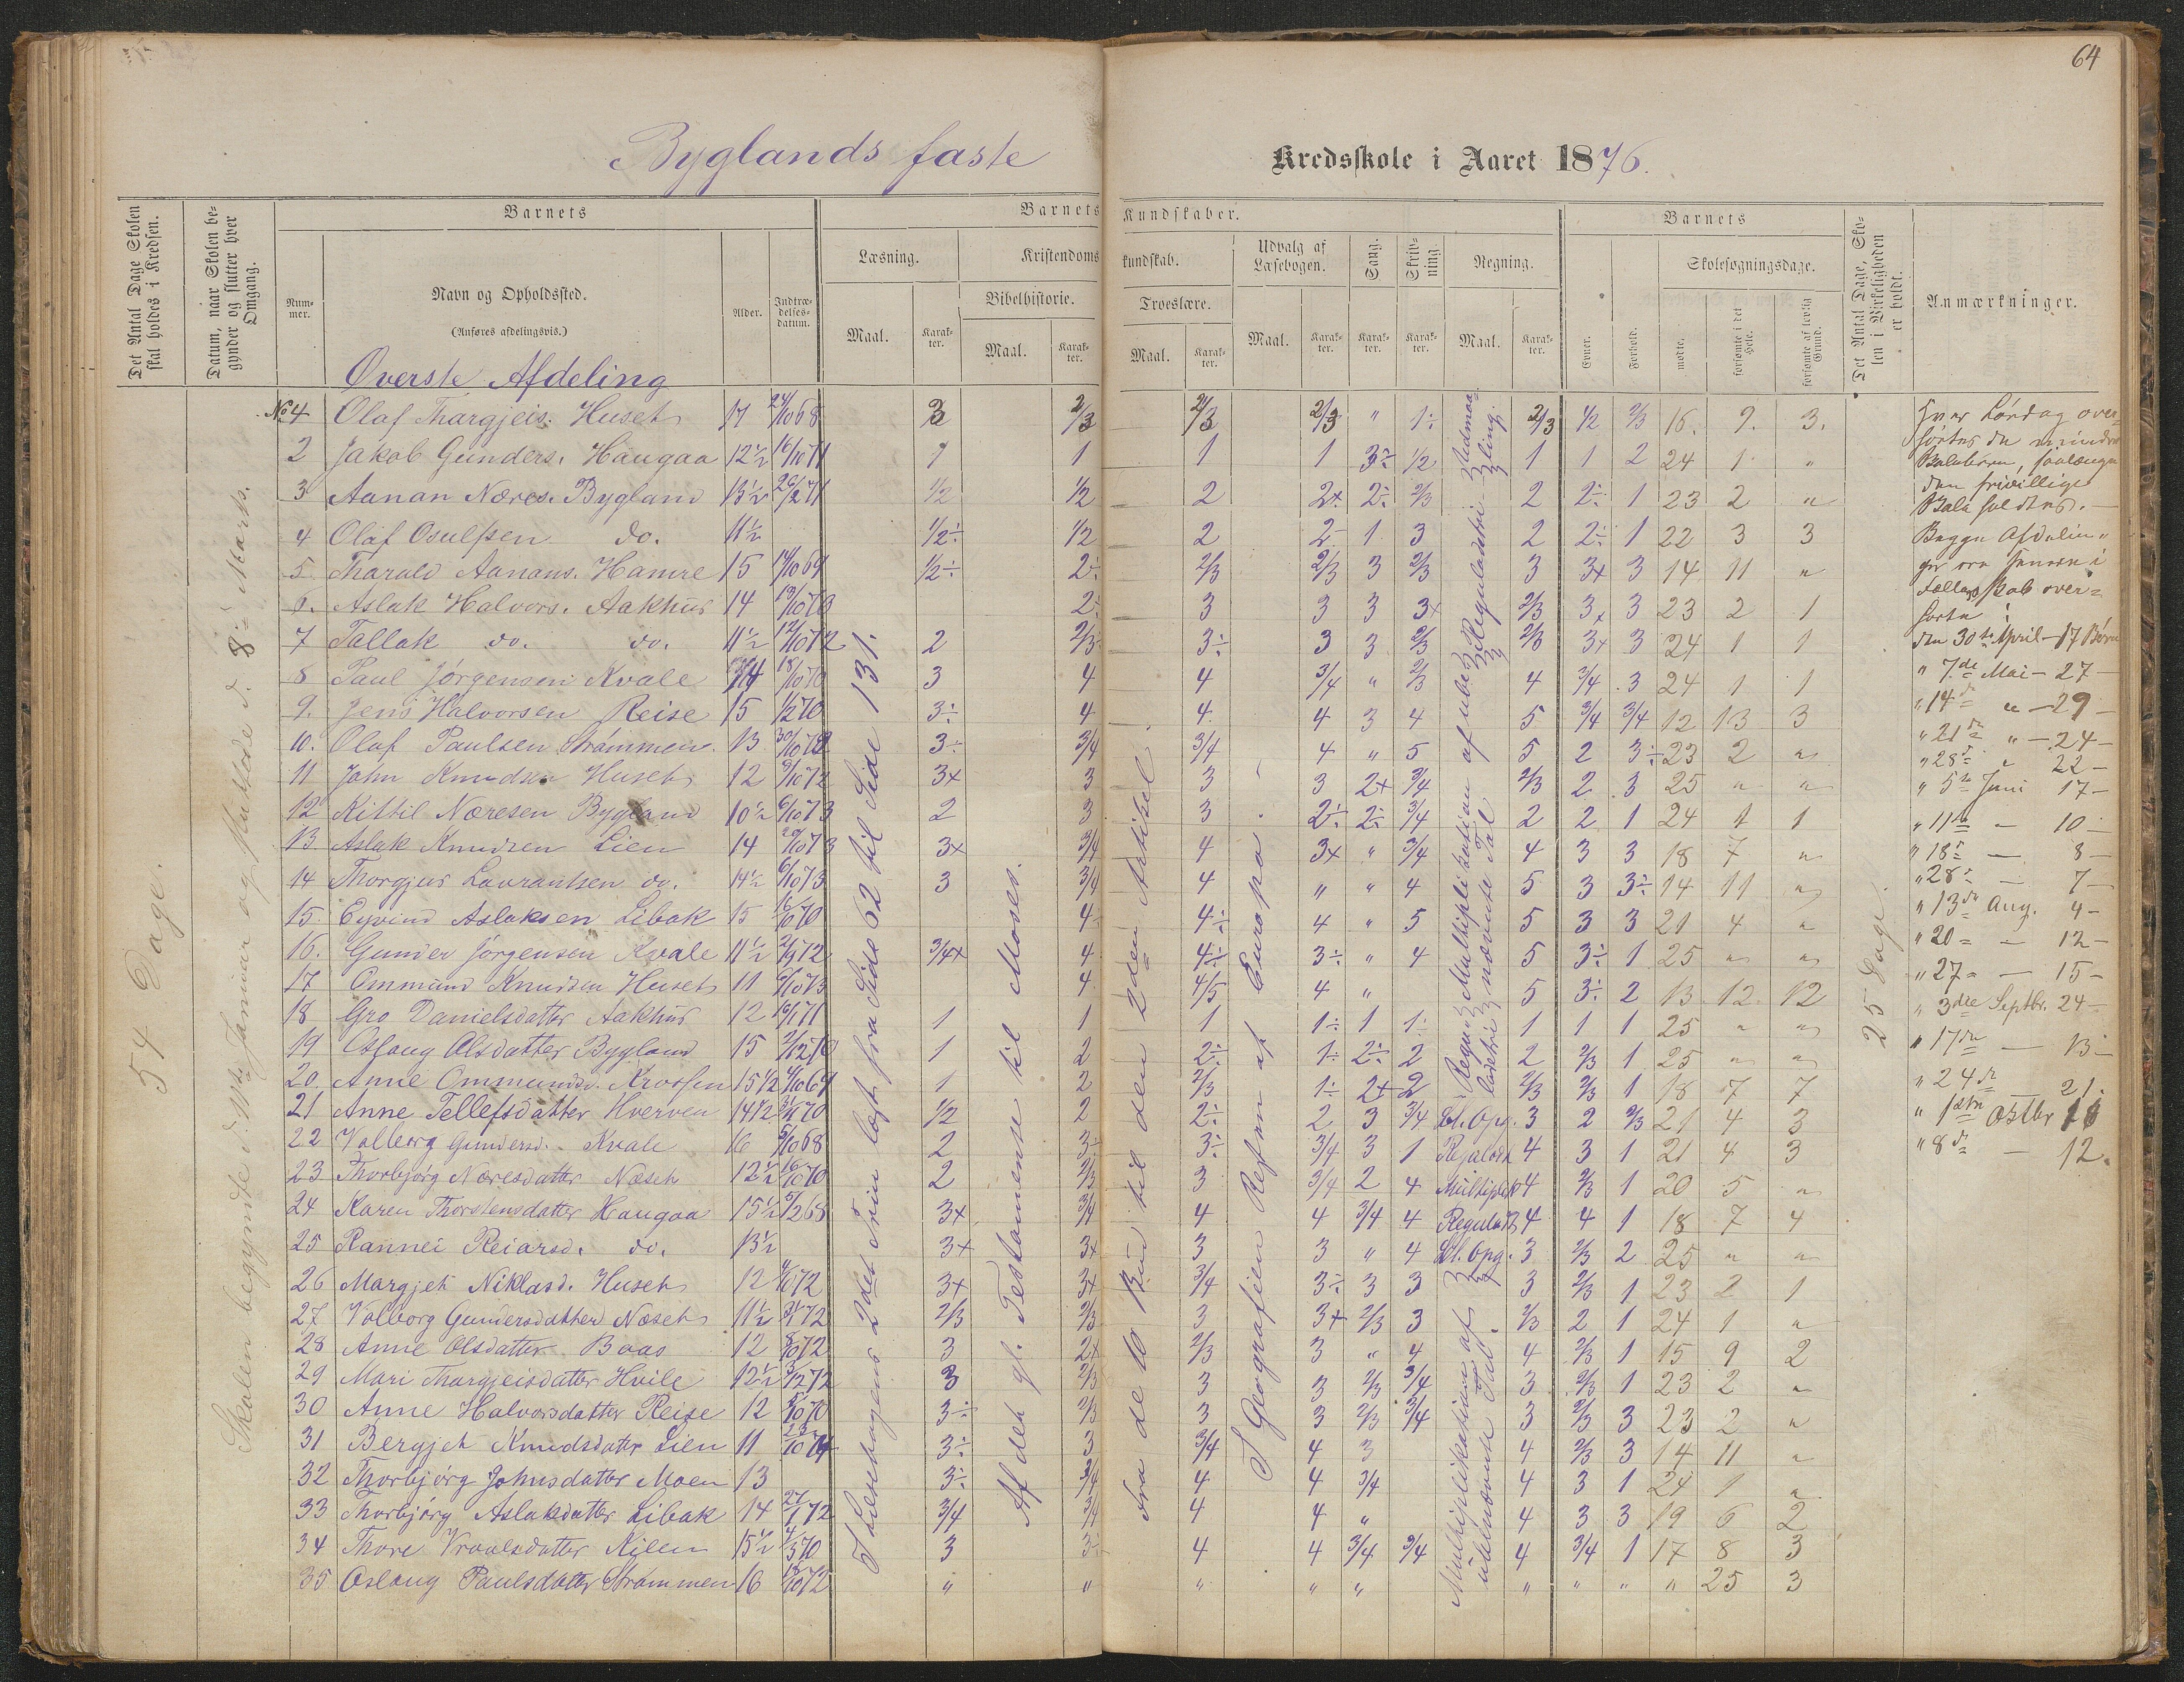 64
Byglands faste
Kredsskole i Aaret 1876.
Det Antal Dage Skolen skal holdes i Kredsen.
Datum, naar Skolen begynder og slutter hver Omgang.
Barnets
Barnets
Kundskaber.
Barnets
Det Antal Dage, Skolen i Virkeligheden er holdt.
Anmærkninger.
Nummer.
Navn og Opholdssted.
(Anføres afdelingsvis.)
Alder.
Indtrædelsesdatum.
Læsning.
Kristendoms
kundskab.
Udvalg af Læsebogen.
Sang.
Skrivning
Regning.
Skolesøgningsdage.
Bibelhistorie.
Troeslære.
Maal. Karakter. Maal. Karakter.
Maal. Karakter. Maal. Karakter. Karakter. Karakter. Maal. Karakter.
Evner. Forhold. mødte. forsømte i det Hele. forsømte af lovlig Grund.
Øverste Afdeling
54 Dage.
Skolen begyndte d. 11te Januar og sluttede d. 8de Marts.
I Læsebogens 2det Trin læst fra Side 62 til Side 131.
Af det gl. Testamente til Moses.
Fra de 10 Bud til den 2den Artikel.
I Geografien Resten af Europa.
25 Dage.
№ 4 Olaf Thargjeis. Huset 17 24/10 68 3 2/3 2/3 2/3 " 1÷ 2/3 1/2 2/3 16. 9. 3.
2 Jakob Gunders. Haugaa 12½ 16/10 71 1 1 1 1 3÷ 1/2 1 1 2 24 1 "
3 Aanan Næres. Bygland 13½ 26/2 71 1/2 1/2 2 2+ 2÷ 2/3 2 2÷ 1 23 2 "
4 Olaf Osulfsen do. 11½ 1/2÷ 1/2 2 2- 1 3 2 2÷ 1 22 3 3
5 Tharald Aanans. Hamre 15 14/10 69 1/2÷ 2÷ 2/3 2/3 3 2/3 3 3+ 3 14 11 "
6. Aslak Halvors. Aakhus 14 13/10 70 2÷ 3 3 3 3+ 2/3 3+ 3 23 2 1
7 Tallak do. do. 11½ 12/10 72 2 2/3 3÷ 3 3 2/3 2/3 3+ 3 24 1 1
8 Paul Jørgensen Kvale 14 18/10 70 3 4 4 3/4 " 2/3 4 3/4 3 24 1 1
9. Jens Halvorsen Reise 15 1/2 70 3÷ 4 4 4 3 4 5 3/4 3/4 12 13 3
10. Olaf Paulsen Strømmen. 13 30/10 72 3÷ 3/4 3/4 4 " 5 5 2 3÷ 23 2 "
11 John Knudsen Huset 12 9/10 72 3+ 3 3 3 2+ 3/4 2/3 2 3 25 " "
12 Kittil Næresen Bygland 10½ 6/10 73 2 3 3 2÷ 2÷ 3/4 2 2 1 24 1 1
13 Aslak Knudsen Lien 14 20/10 73 3+ 3/4 4 3+ " 3/4 4 3 3 18 7 "
14 Thorgjus Lavrantsen do. 14½ 6/10 73 3 3/4 4 " " 4 5 3 3÷ 14 11 "
15. Eyvind Aslaksen Libak 15 16/10 70 4 4÷ 4 " 5 5 3 3 21 4 "
16. Gunder Jørgensen Kvale 11½ 2/1 72 3/4+ 4 4÷ 3÷ " 4 5 3÷ 1 25 " "
17 Ommund Knudsen Huset 11 9/10 73 4 4/5 4 " 5 3÷ 2 13 12 12
18 Gro Danielsdatter Aakhus 12 10/1 71 1 1 1 1÷ 1 1÷ 1 1 1 25 " "
19 Oslaug Olsdatter Bygland 15 2/12 70 1 2 2÷ 1÷ 2÷ 2 2 2/3 1 25 " "
20. Anne Ommundsd. Krossen 15½ 4/10 69 1 2 2/3 1÷ 2+ 2 2/3 2/3 1 18 7 7
21 Anne Tellefsdatter Hverven 14½ 31/1 70 1/2 2 2÷ 2 3 3/4 3 2 2/3 21 4 3
22 Volborg Gundersd. Kvale 16 5/10 68 2 3÷ 3÷ 3/4 3 1 4 3 1 21 4 3
23 Thorbjørg Næresdatter Næset 12½ 16/10 70 2 2/3 3 3/4 2 4 4 2/3 1 20 5 "
24 Karen Thorstensdatter Haugaa 15½ 5/2 68 3+ 3/4 4 4 3/4 4 4 4 1 18 7 4
25 Rannei Reiarsd. do. 13½ 3+ 3+ 3 3 " 4 3 2/3 2 25 " "
26 Margjet Niklasd. Huset 12 4/10 72 3+ 3+ 3/4 3÷ 3 3 3 2/3 1 23 2 1
27 Volborg Gundersdatter Næset 11½ 3/1 72 2/3 2/3 3 3+ 2/3 3 2/3 2 1 24 1 "
28 Anne Olsdatter Boas 12 8/10 72 3 2+ 2/3 3 " 4 4 2/3 1 15 9 2
29 Mari Thorgjeisdatter Hvile 12½ 3/2 72 3 2/3 3 3 2/3 3/4 3 2/3 1 23 2 "
30 Anne Halvorsdatter Reise 12 5/10 70 3÷ 2/3 3 3 2/3 3/4 3 2/3 3 23 2 "
31 Bergjet Knudsdatter Lien 11 23/10 74 3÷ 3 3/4 4 3 4 2/3 3 14 11 "
32 Thorbjørg Johnsdatter Moen 13 3÷ 3/4 4 4 3/4 4 3 1 24 1 "
33 Thorbjørg Aslaksdatter Libak 14 27/1 72 3/4 3/4 4 4 " 4 3 3 19 6 2
34 Thore Vraalsdatter Kilen 15½ 4/3 70 3 3÷ 4 4 3/4 3/4 4 3/4 1 17 8 3
35 Oslaug Paulsdatter Strømmen 16 18/10 72 " " " " " " " " " 25 3
Udmaaling.
Reguladetri
Multiplikation af ubenævnte Tal
Reguladetri
Kl. Opg.
Reguladet
Multiplik
Reguladt
Kl. Opg.
Multiplikation af ubenævnte Tal.
Hver Lørdag over
hørtes de mindre
Balebørn, saalænge
den frivillige
Bale holdtes.
Begge Afdelin=
ger ere senere i
Fællesskab over=
hørte:
den 30te April – 17 Børn
" 7de Mai – 27 –
" 14de " – 29 –
" 21de " – 24 –
" 28de " 22 –
" 5te Juni 17 –
" 11te – 10 –
" 18de – 8 –
" 28de – 7 –
" 13de Aug. 4 –
" 20 – 12 –
" 27 – 15 –
" 3die Septbr. 24 –
" 17de – 13 –
" 24de 21.
" 1ste Octbr 18
" 8de – 12.